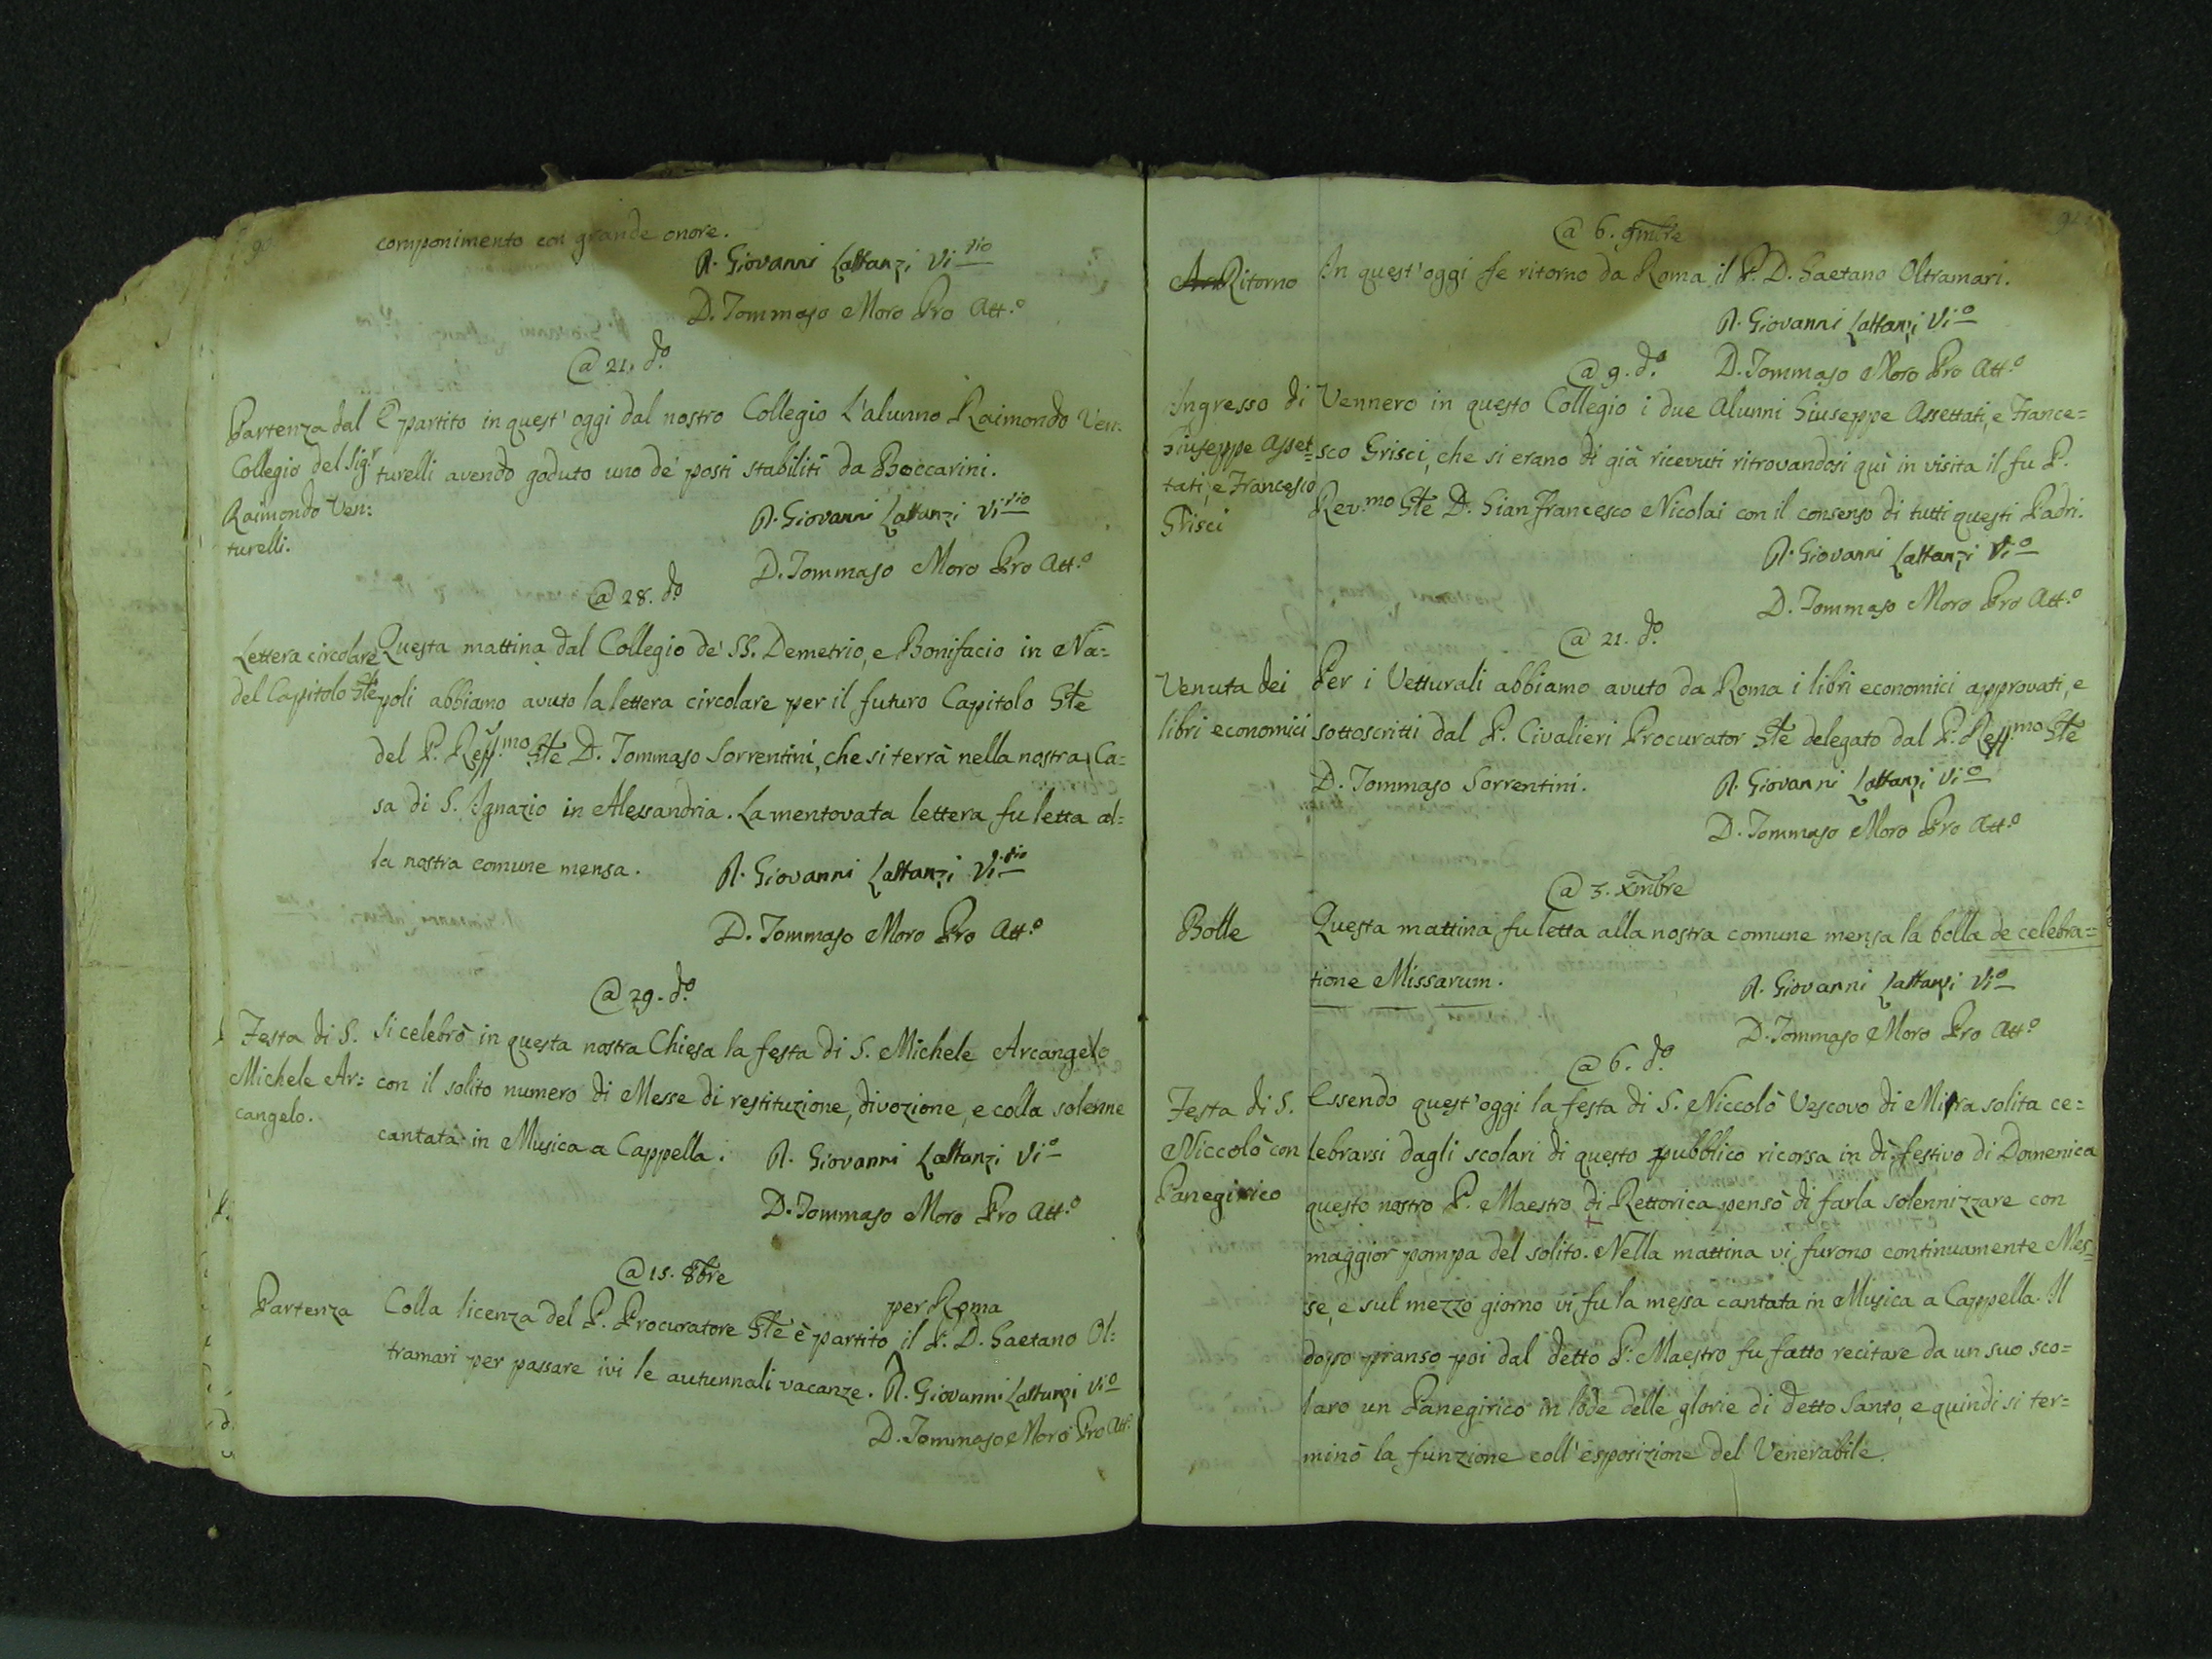 90
componimento con grande onore.
A. Giovanni Lattanzi Vi.rio
D. Tommaso Moro Pro Att.o
@ 21. d.o
Partenza dal
Collegio del Sig.r
Raimondo Ven=
turelli.
È partito in quest' oggi dal nostro Collegio l'alunno Raimondo Ven=
turelli avendo goduto uno de' posti stabiliti da Boccarini.
A. Giovanni Lattanzi Vi.rio
D. Tommaso Moro Pro Att.o
@ 28. d.o
Lettera circolare
del Capitolo Gle
Questa mattina dal Collegio de' SS. Demetrio, e Bonifacio in Na=
poli abbiamo avuto la lettera circolare per il futuro Capitolo Gle
del P. Reff.mo Gle D. Tommaso Sorrentini, che si terrà nella nostra Ca=
sa di S. Ignazio in Alessandria. La mentovata lettera fu letta al=
la nostra comune mensa.
A. Giovanni Lattanzi Vi.rio
D. Tommaso Moro Pro Att.o
@ 29. d.o
Festa di S.
Michele Ar=
cangelo.
Si celebrò in questa nostra Chiesa la festa di S. Michele Arcangelo
con il solito numero di Messe di restituzione, divozione, e colla solenne
cantata in Musica a Cappella.
A. Giovanni Lattanzi Vi.o
D. Tommaso Moro Pro Att.o
@ 15. 8bre
Partenza
per Roma
Colla licenza del P. Procuratore Gle è partito il P. D. Gaetano Ol=
tramari per passare ivi le autunnali vacanze. A. Giovanni Lattanzi Vi.o
D. Tommaso Moro Pro Att.o
@ 6. 9mbre
Ritorno
In quest'oggi fe ritorno da Roma il P. D. Gaetano Oltramari.
A. Giovanni Lattanzi Vi.o
@ 9. d.o D. Tommaso Moro Pro Att.o
Ingresso di
Giuseppe Asset=
tati, e Francesco
Grisci
Vennero in questo Collegio i due Alunni Giuseppe Assettati, e France=
sco Grisci, che si erano di già ricevuti ritrovandosi quì in visita il fu P.
Rev.mo Gle D. Gianfrancesco Nicolai con il consenso di tutti questi Padri.
A. Giovanni Lattanzi Vi.o
D. Tommaso Moro Pro Att.o
@ 21. d.o
Venuta dei
libri economici
Per i Vetturali abbiamo avuto da Roma i libri economici approvati, e
sottoscritti dal P. Civalieri Procurator Gle delegato dal P. Reff.mo Gle
D. Tommaso Sorrentini.
A. Giovanni Lattanzi Vi.o
D. Tommaso Moro Pro Att.o
@ 3. Xmbre
Bolle
Questa mattina fu letta alla nostra comune mensa la bolla de celebra=
tione Missarum.
A. Giovanni Lattanzi Vi.o
D. Tommaso Moro Pro Att.o
@ 6. d.o
Festa di S.
Niccolò con
Panegirico
Essendo quest'oggi la festa di S. Niccolò Vescovo di Mirra solita ce=
lebrarsi dagli scolari di questo pubblico ricorsa in dì festivo di Domenica
questo nostro P. Maestro di Rettorica pensò di farla solennizzare con
maggior pompa del solito. Nella mattina vi furono continuamente Mes=
se, e sul mezzo giorno vi fu la messa cantata in Musica a Cappella. Il
dopo pranso poi dal detto P. Maestro fu fatto recitare da un suo sco=
laro un Panegirico in lode delle glorie di detto Santo, e quindi si ter=
minò la funzione coll'esposizione del Venerabile.